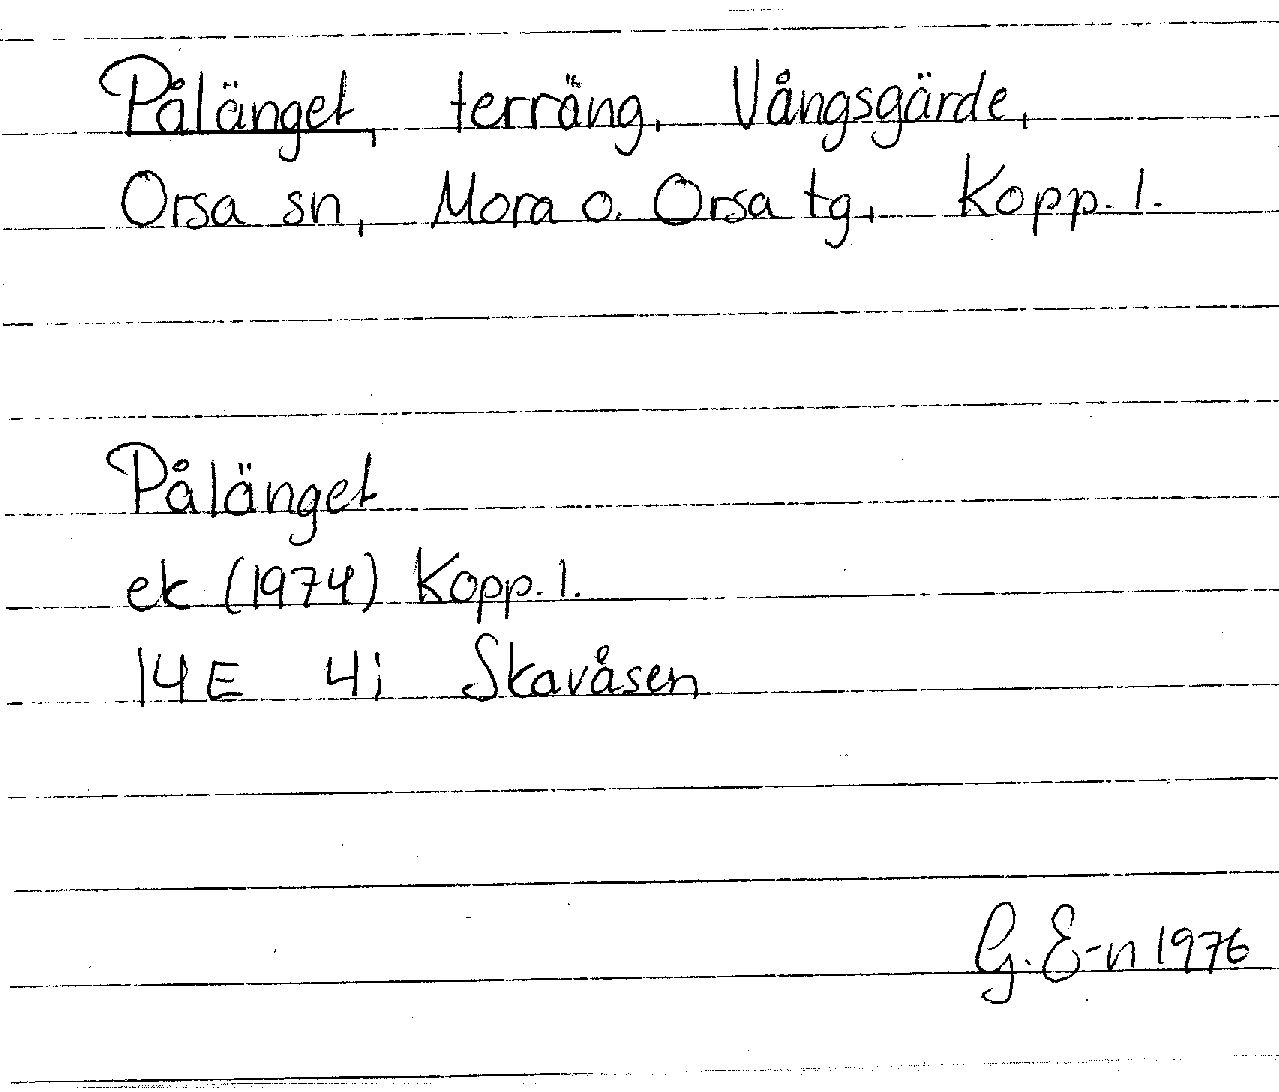 Pålänget, terräng, Vångsgärde,
Orsa sn, Mora o. Orsa tg, Kopp. l.
Pålänget
ek (1974) Kopp. l.
14E 4i Skavåsen
G. E-n 1976